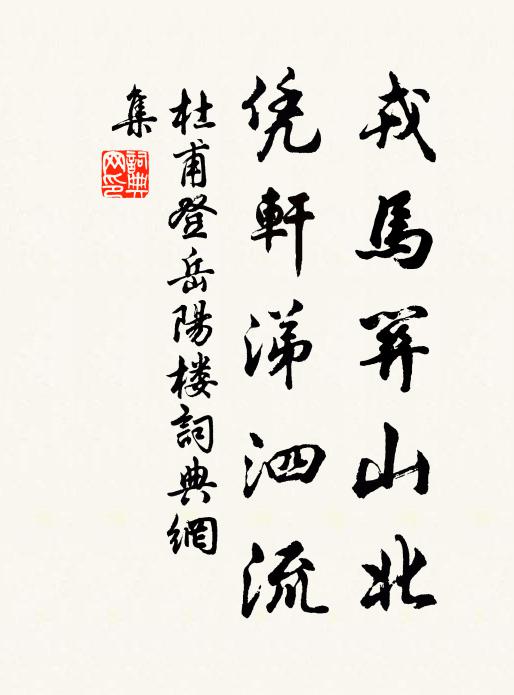 戎馬關山北
凭軒涕泗流
杜甫登岳陽楼詞典網
集
詞典
网印